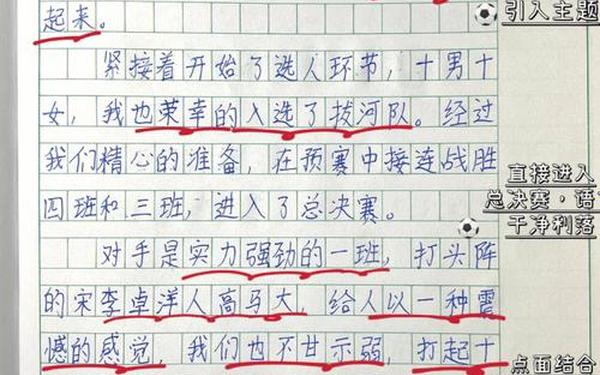 起来。
引入主题
紧接着开始了选人环节，十男十
女，我也荣幸的入选了拔河队。经过
我们精心的准备，在预赛中接连战胜
直接进入
四班和三班，进入了总决赛。
总决赛·语
干净利落
对手是实力强劲的一班，打头阵
的宋李卓洋人高马大，给人以一种震
憾的感觉，我们也不甘示弱，打起十
点面结合